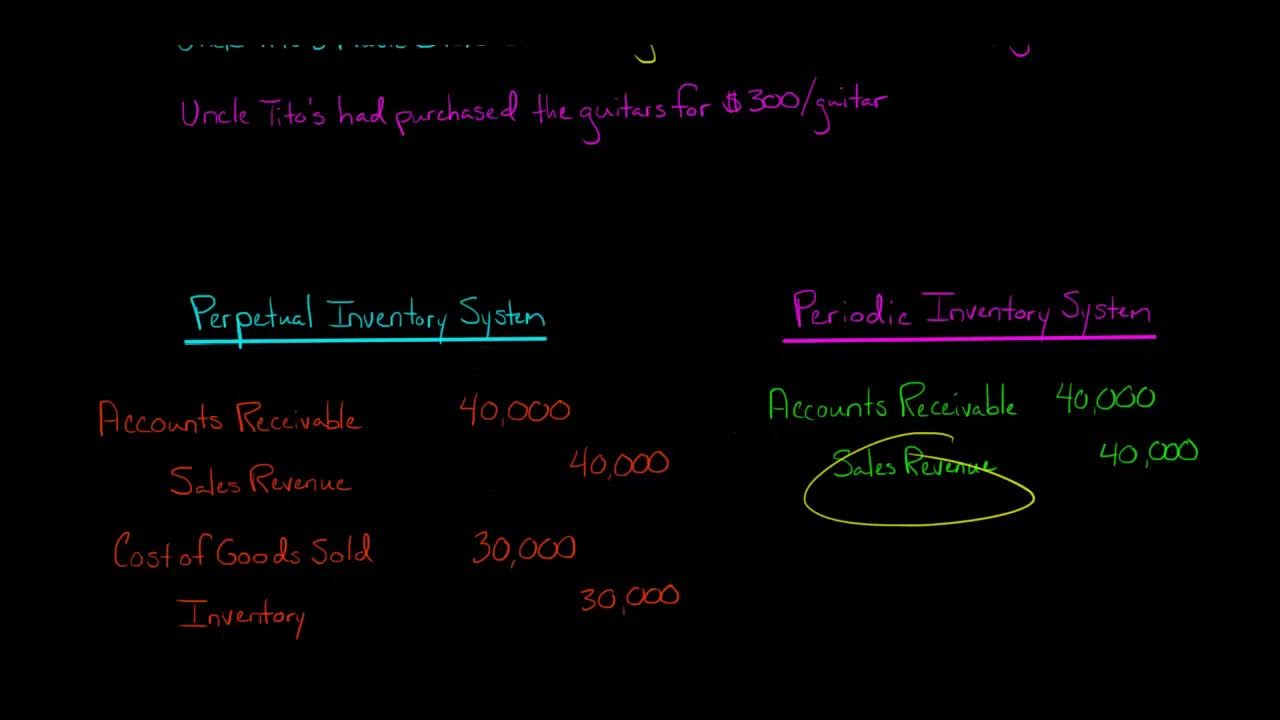 Uncle Tito's
Uncle Tito's had purchased the guitars for $300/guitar
Perpetual Inventory System
Periodic Inventory System
Accounts Receivable 40,000
Sales Revenue 40,000
Cost of Goods Sold 30,000
Inventory 30,000
Accounts Receivable 40,000
Sales Revenue 40,000